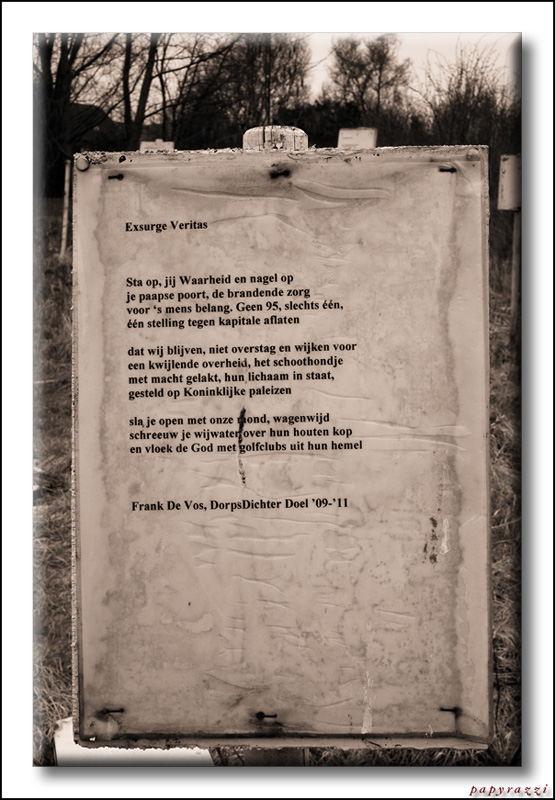 Exsurge Veritas
Sta op, jij Waarheid en nagel op
je paapse poort, de brandende zorg
voor ‘s mens belang. Geen 95, slechts één,
één stelling tegen kapitale aflaten
dat wij blijven, niet overstag en wijken voor
een kwijlende overheid, het schoothondje
met macht gelakt, hun lichaam in staat,
gesteld op Koninklijke paleizen
sla je open met onze mond, wagenwijd
schreeuw je wijwater over hun houten kop
en vloek de God met golfclubs uit hun hemel
Frank De Vos, DorpsDichter Doel ’09-’11
papyrazzi